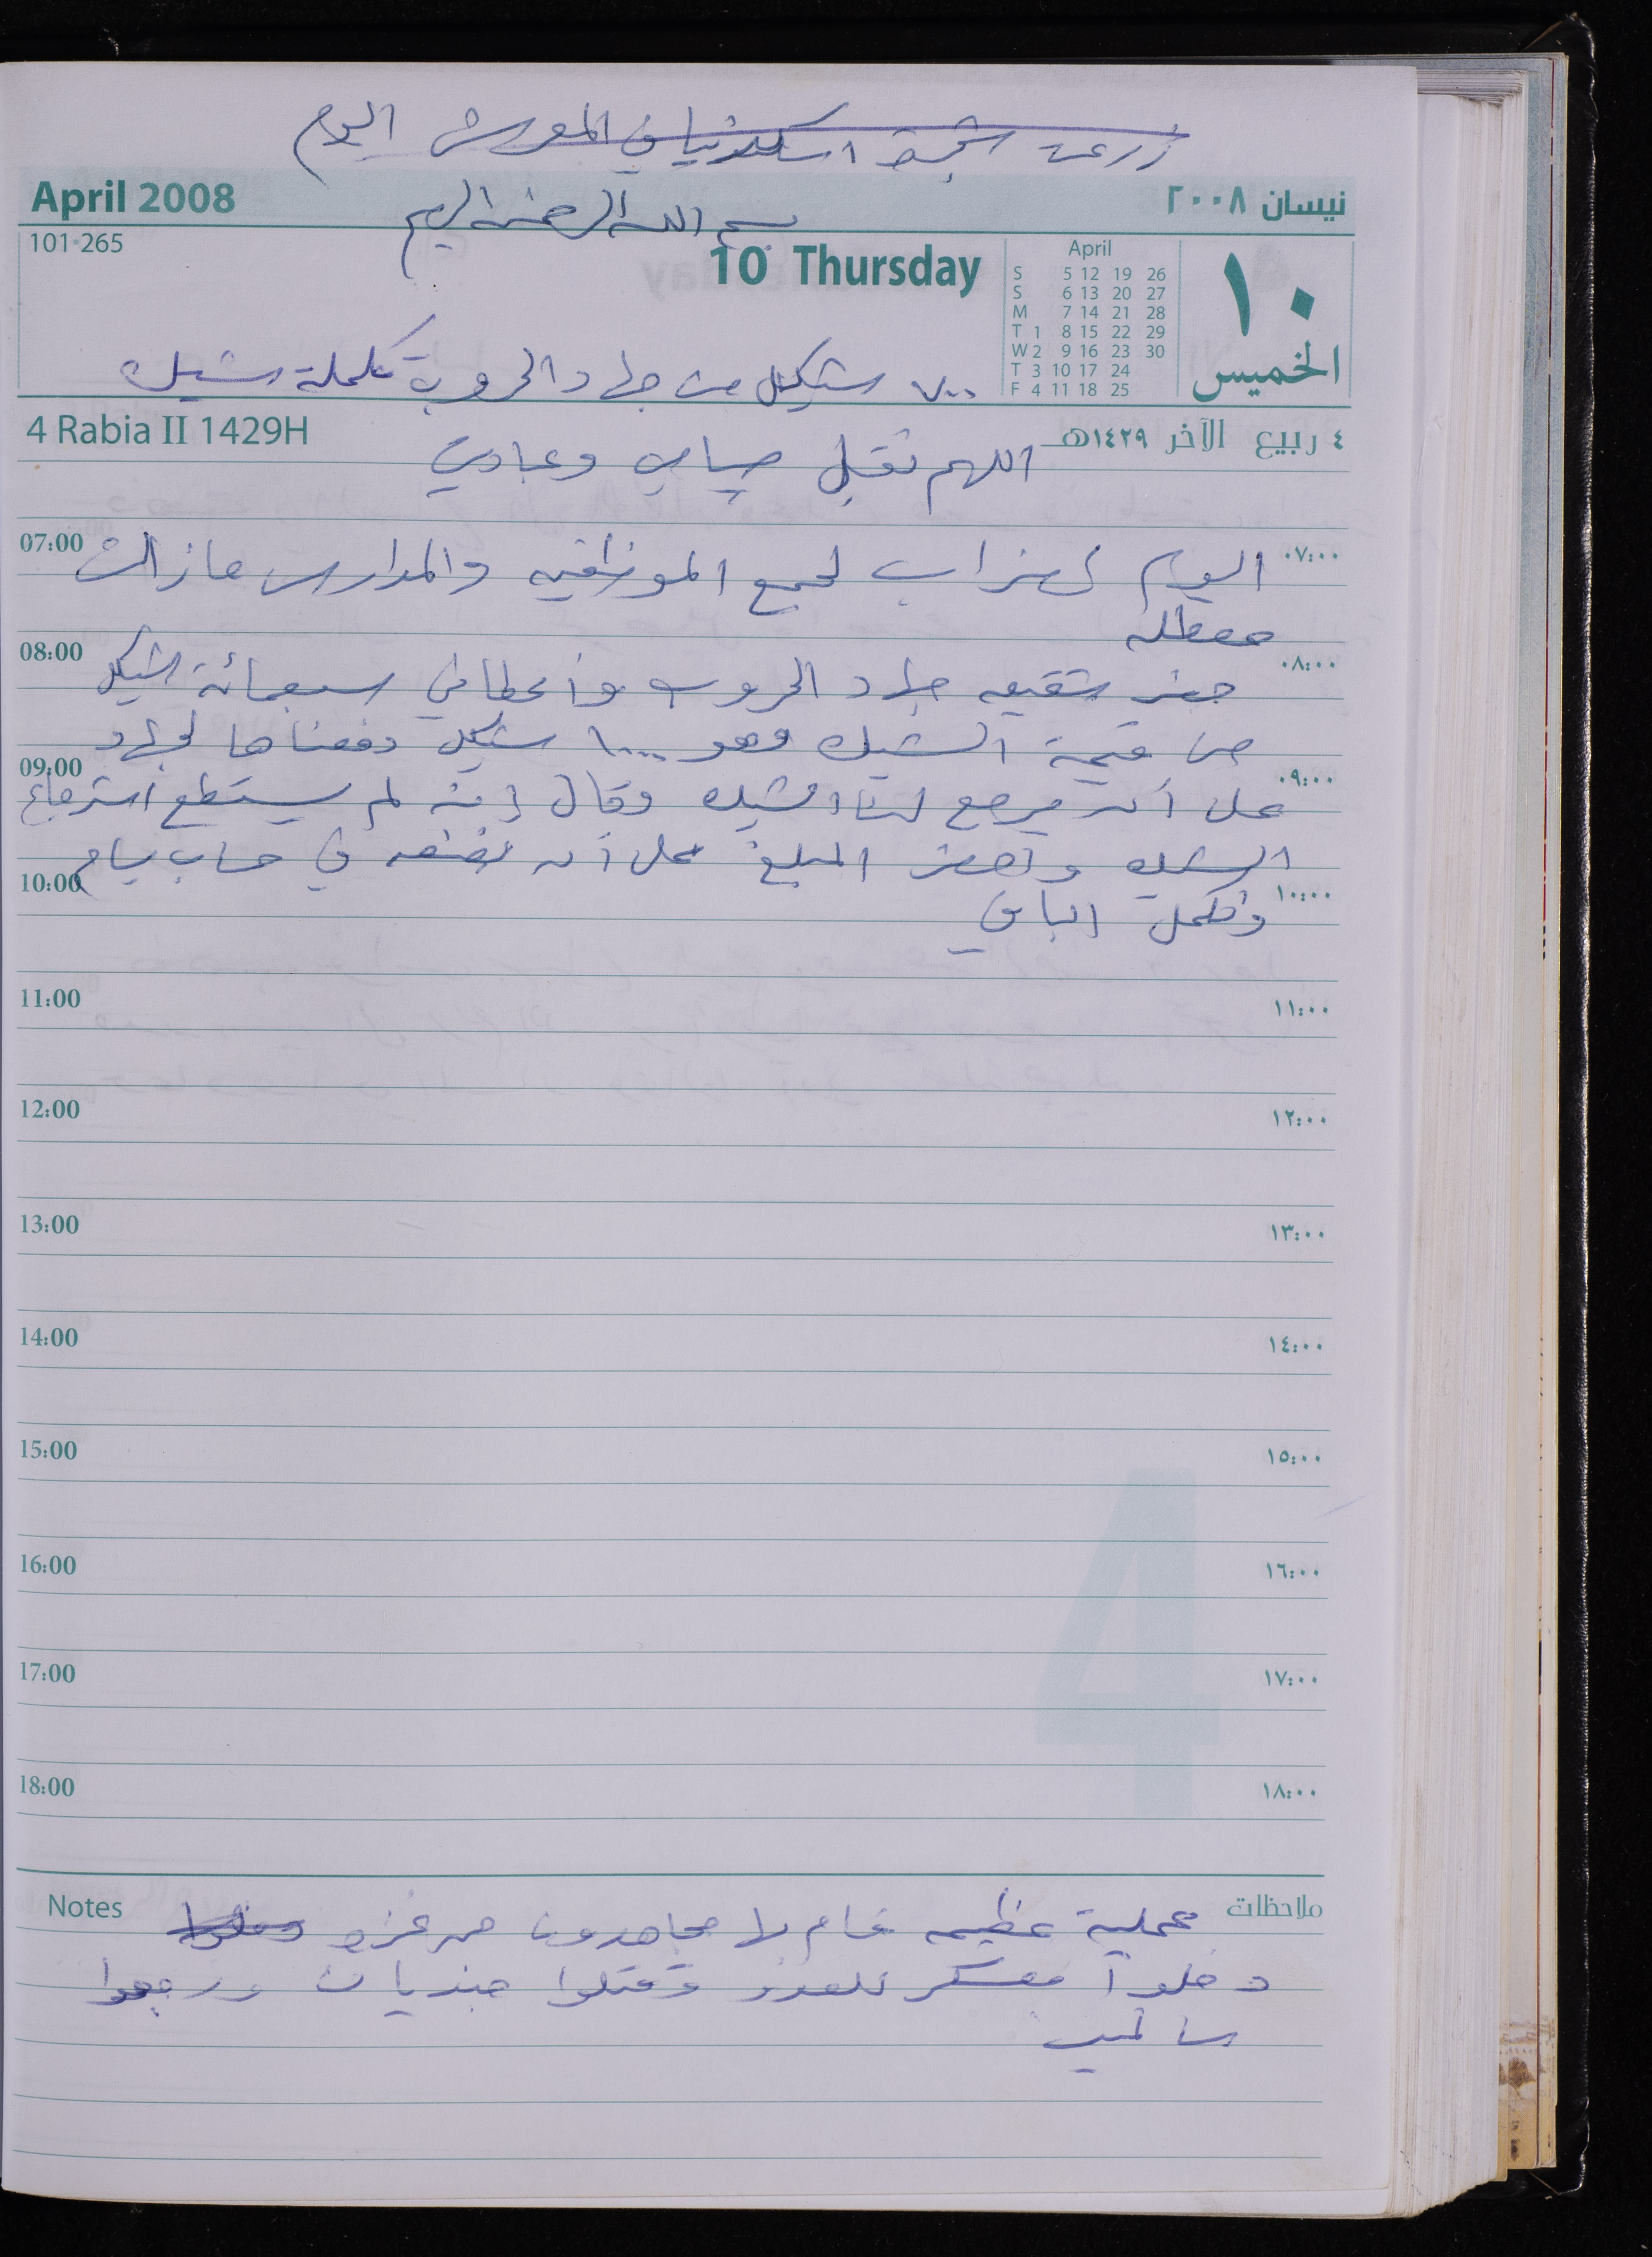 زرعت شجرة اسكدنيا في المعرش اليوم
April 2008
نيسان ٢٠٠٨
بسم الله الرحمن الرحيم
101-265
10 Thursday
April
S 5 12 19 26
S 6 13 20 27
M 7 14 21 28
T 1 8 15 22 29
W 2 9 16 23 30
T 3 10 17 24
F 4 11 18 25
١٠
الخميس
٧٠٠ شيكل من جهاد الحروب تكملة شيك
4 Rabia II 1429H
٤ ربيع الآخر ١٤٢٩هـ
اللهم تقبل صيامي وعبادتي
07:00 اليوم إضراب لجميع الموظفين والمدارس مازالت ٠٧:٠٠
معطلة
08:00 ٠٨:٠٠
حضر شقيق جهاد الحروب وأعطاني سبعمائة شيكل
من قيمة الشيك وهو ١٠٠٠ شيكل دفعناها لجهاد
09:00 ٠٩:٠٠
على أن يرجع لنا الشيك وقال إنه لم يستطع استرجاع
الشيك وأحضر المبلغ على أن نضعه في حساب بسام
10:00 ١٠:٠٠
ونكمل الباقي
11:00 ١١:٠٠
12:00 ١٢:٠٠
13:00 ١٣:٠٠
14:00 ١٤:٠٠
15:00 ١٥:٠٠
16:00 ١٦:٠٠
4
17:00 ١٧:٠٠
18:00 ١٨:٠٠
Notes
ملاحظات
عملية عظيمة قام بها مجاهدون من غزة
دخلوا معسكر للعدو وقتلوا جنديان ورجعوا
سالمين